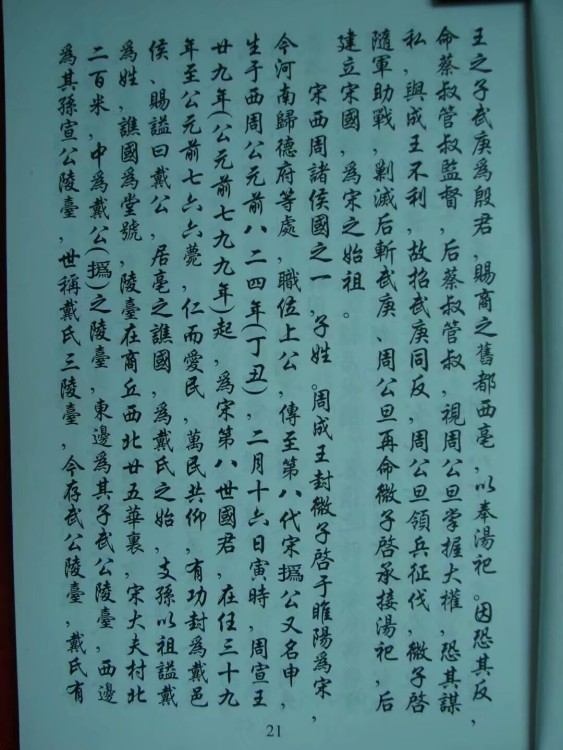 王之子武庚爲殷君，賜商之舊都西亳，以奉湯祀。因恐其反，
命蔡叔管叔監督，后蔡叔管叔，視周公旦掌握大權，恐其謀
私，與成王不利，故招武庚同反，周公旦領兵征伐，微子啓
隨軍助戰，剿滅后斬武庚、周公旦再命微子啓承接湯祀，后
建立宋國，爲宋之始祖。
宋西周諸侯國之一，子姓。周成王封微子啓于睢陽爲宋，
今河南歸德府等處，職位上公，傳至第八代宋撝公又名申，
生于西周公元前八二四年(丁丑)，二月十六日寅時，周宣王
廿九年(公元前七九九年)起，爲宋第八世國君，在任三十九
年至公元前七六六薨，仁而愛民，萬民共仰，有功封爲戴邑
侯、賜謚曰戴公，居亳之譙國，爲戴氏之始，支孫以祖謚戴
爲姓，譙國爲堂號，陵臺在商丘西北廿五華裏，宋大夫村北
二百米，中爲戴公(撝)之陵臺，東邊爲其子武公陵臺，西邊
爲其孫宣公陵臺，世稱戴氏三陵臺，今存武公陵臺，戴氏有
21